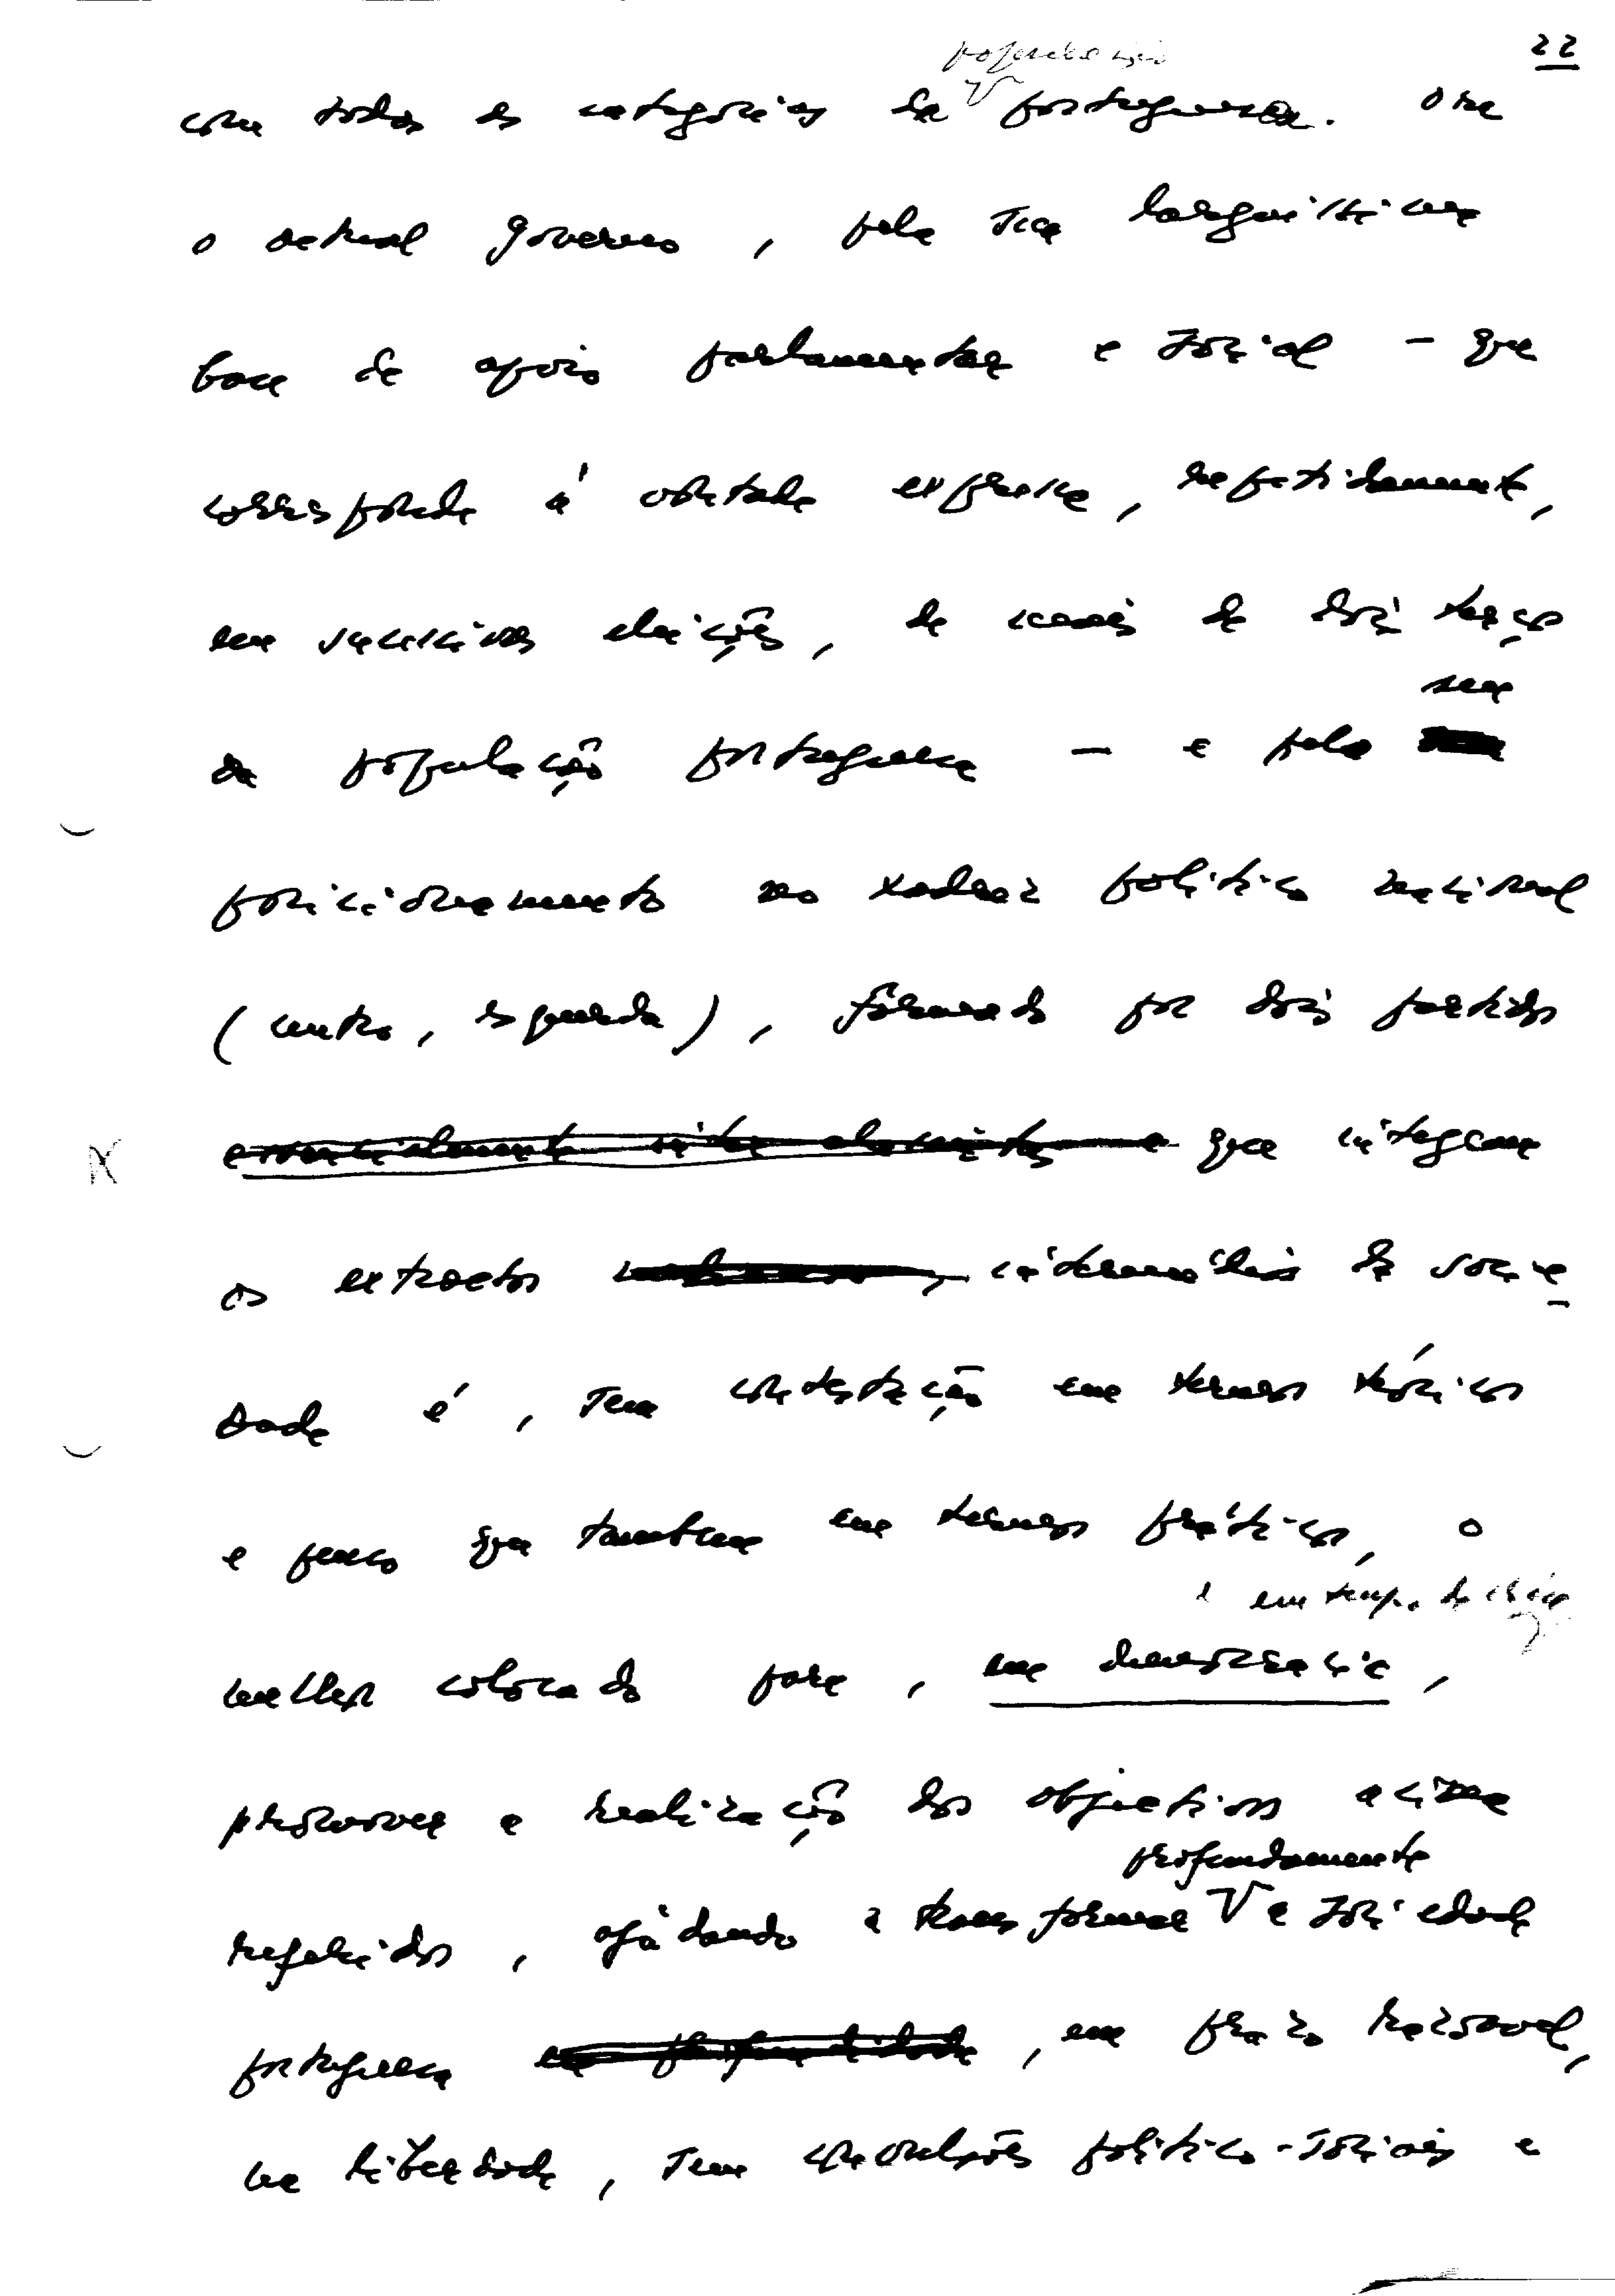 22
população
com todas as categorias da portuguesa. Ora
o actual governo, pela sua larguíssima
base de apoio parlamentar e social - que
corresponde à vontade expressa, repetidamente,
em sucessivas eleições, de mais de dois terços
sem
da população portuguesa - e pelo
posicionamento no xadrez político nacional
(centro, esquerda), formado por dois partidos
que integram
os extractos intermédios da socie-
dade é, sem contestação em termos teóricos
e penso que também em termos práticos, o
e em tempo de crise
melhor colocado para, em democracia,
promover a realização dos objectivos acima
profundamente
referidos, ajudando a transformar a sociedade
portuguesa, em prazo razoavel,
na liberdade, sem convulsões político-sociais e